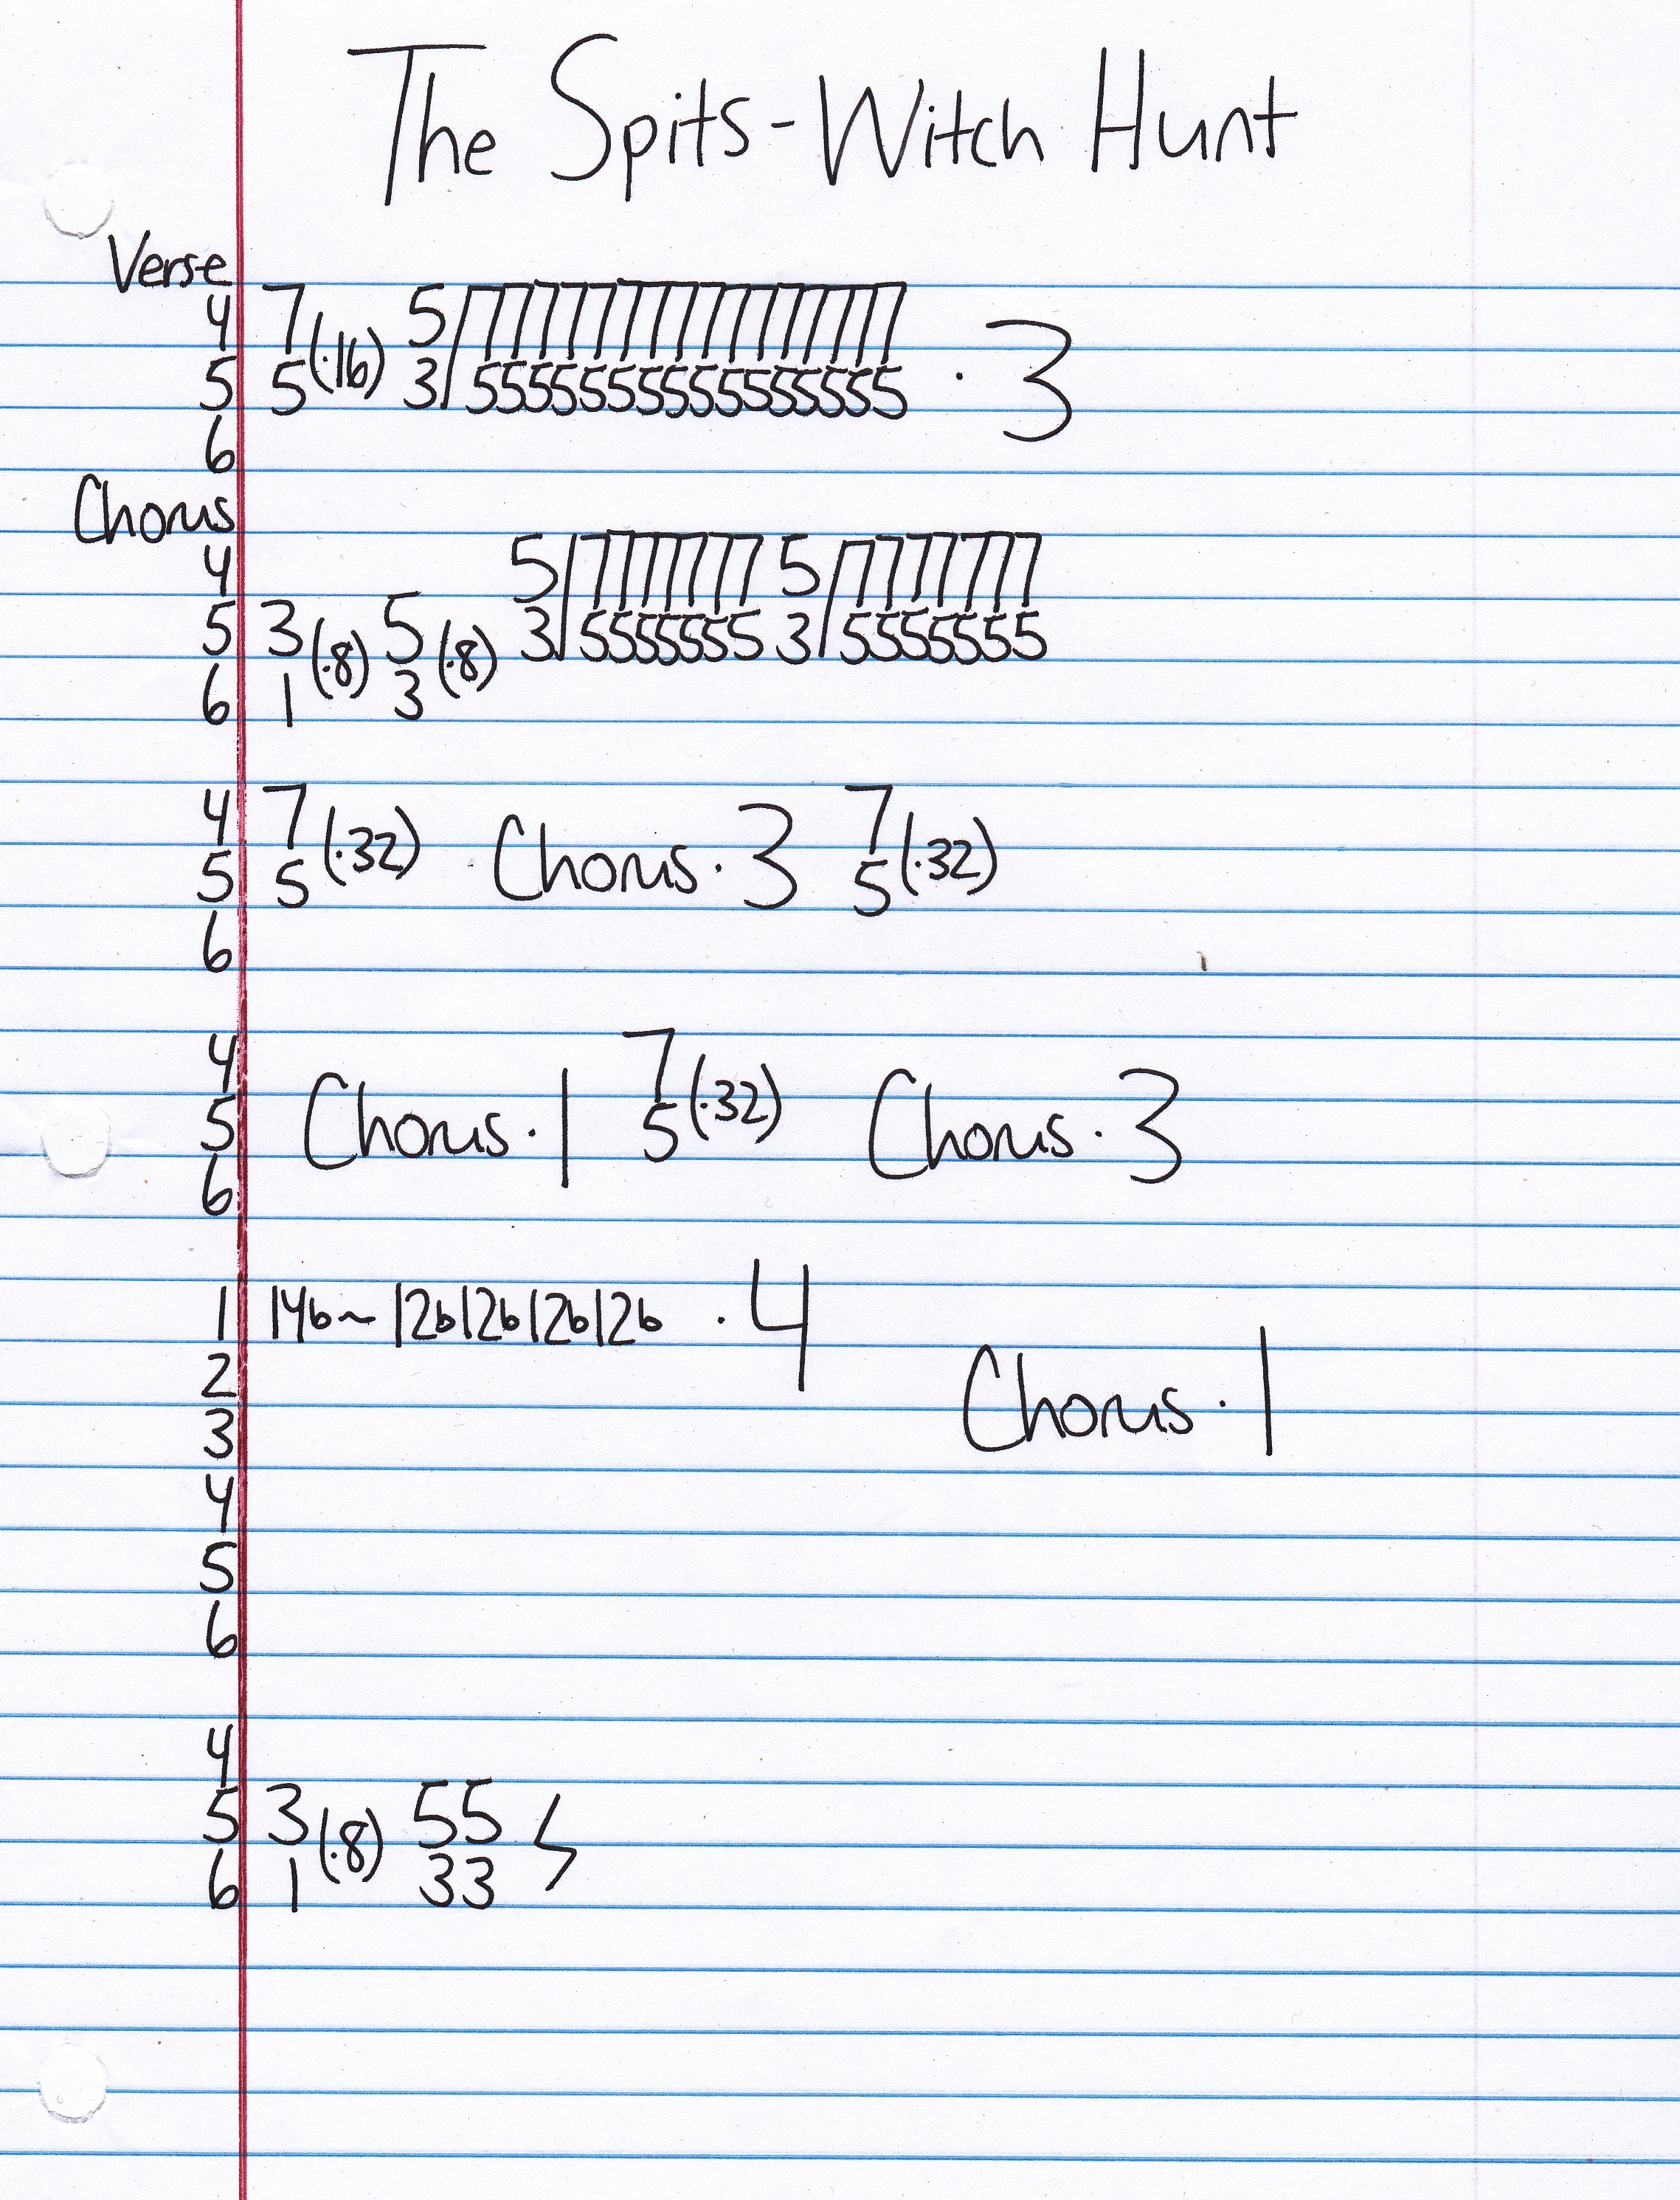 The Spits - Witch Hunt
Verse
4 7 5/777777777777777
5 5 (·16) 3/555555555555555 · 3
6
Chorus
4 5/7777777 5/7777777
5 3 (·8) 5 (·8) 3/5555555 3/5555555
6 1 3
4 7 7
5 5 (·32) Chorus · 3 5 (·32)
6
4 7
5 Chorus · 1 5 (·32) Chorus · 3
6
1 14b~ 12b12b12b12b · 4
2 Chorus · 1
3
4
5
6
4
5 3 (·8) 55
6 1 33